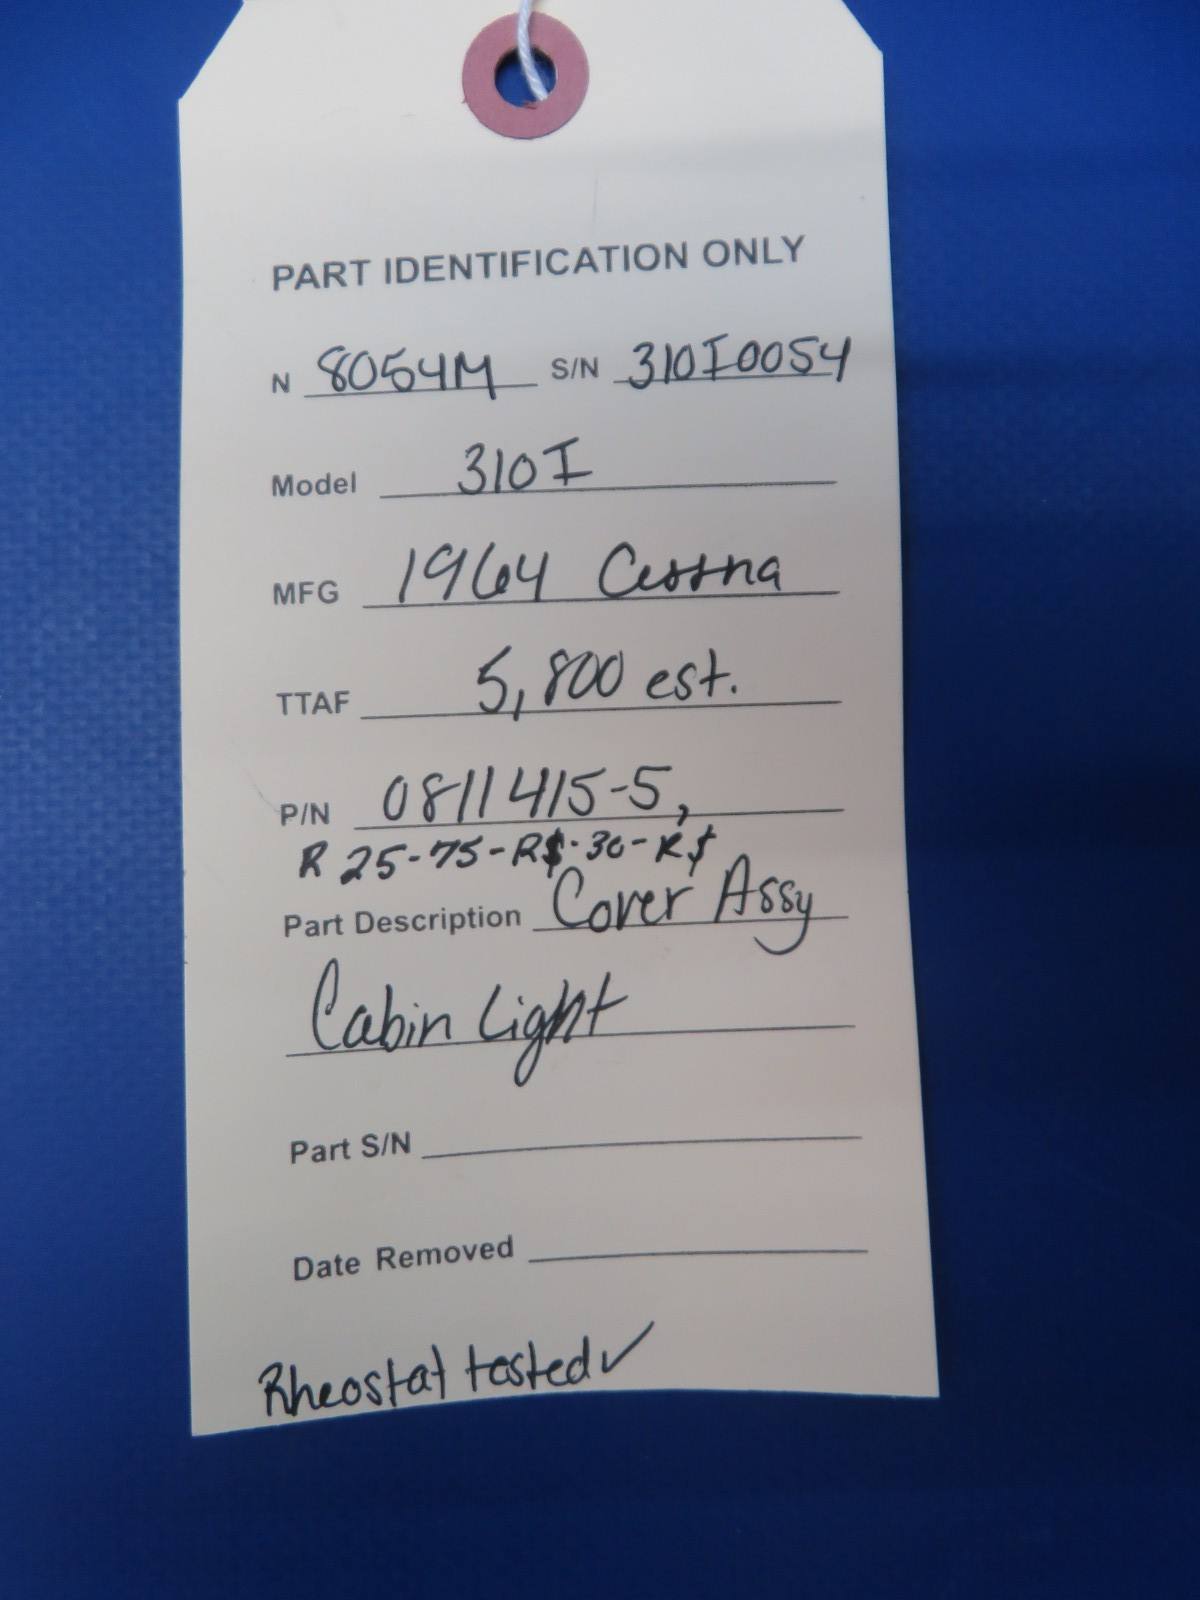 PART IDENTIFICATION ONLY
N 8054M S/N 310I0054
Model 310I
MFG 1964 Cessna
TTAF 5,800 est.
P/N 0811415-5,
R 25-75-R$-30-R$
Part Description Cover Assy
Cabin Light
Part S/N
Date Removed
Rheostat tested ✓